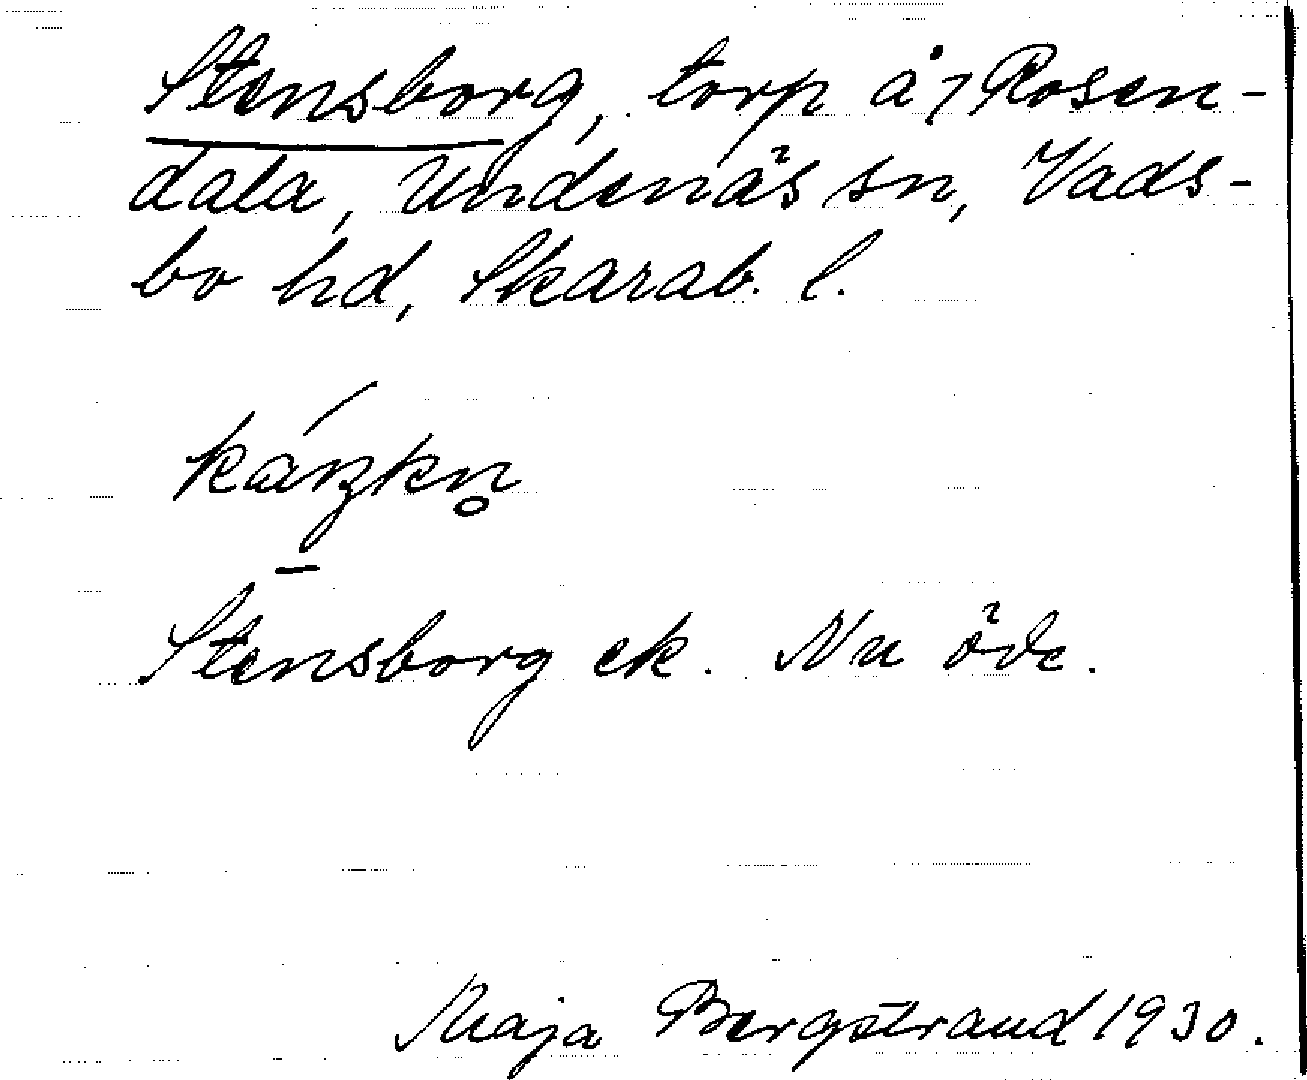 Stensborg, torp å 7 Rosen-
dala, Undenäs sn, Vads-
bo hd, Skarab. l.
Stensborg ek. Nu öde.
Maja Bergstrand 1930.